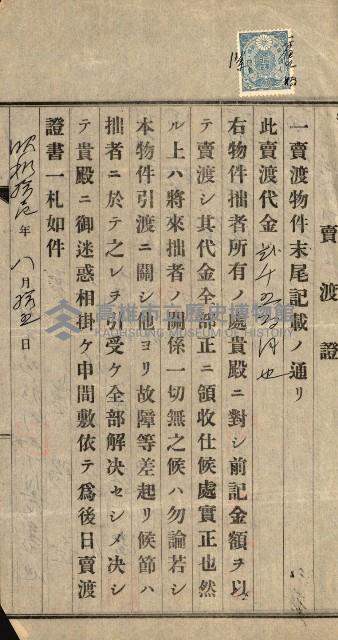 賣渡證
一賣渡物件末尾記載ノ通リ
此賣渡代金 貳千五百円也
右物件拙者所有ノ處貴殿ニ對シ前記金額ヲ以
テ賣渡シ其代金全部正ニ領收仕候處實正也然
ル上ハ將來拙者ノ關係一切無之候ハ勿論若シ
本物件引渡ニ關シ他ヨリ故障等差起リ候節ハ
拙者ニ於テ之レヲ引受ケ全部解決セシメ決シ
テ貴殿ニ御迷惑相掛ケ申間敷依テ爲後日賣渡
證書一札如件
昭和 年八月 日
高雄市立歷史博物館
KAOHSIUNG MUSEUM OF HISTORY